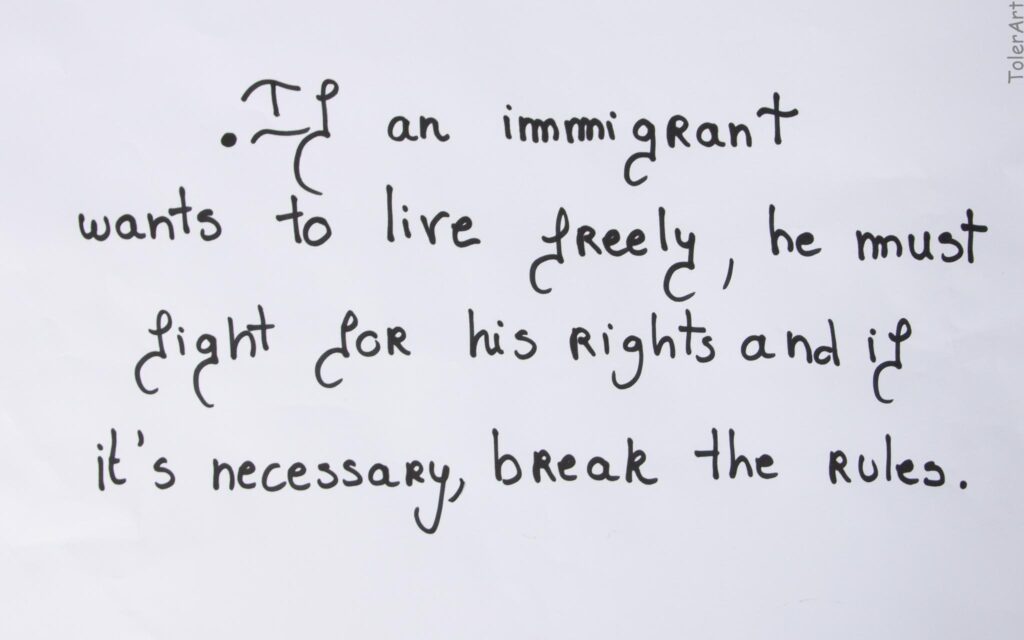 .If an immigrant
wants to live freely, he must
fight for his rights and if
it's necessary, break the rules.
TolerArt